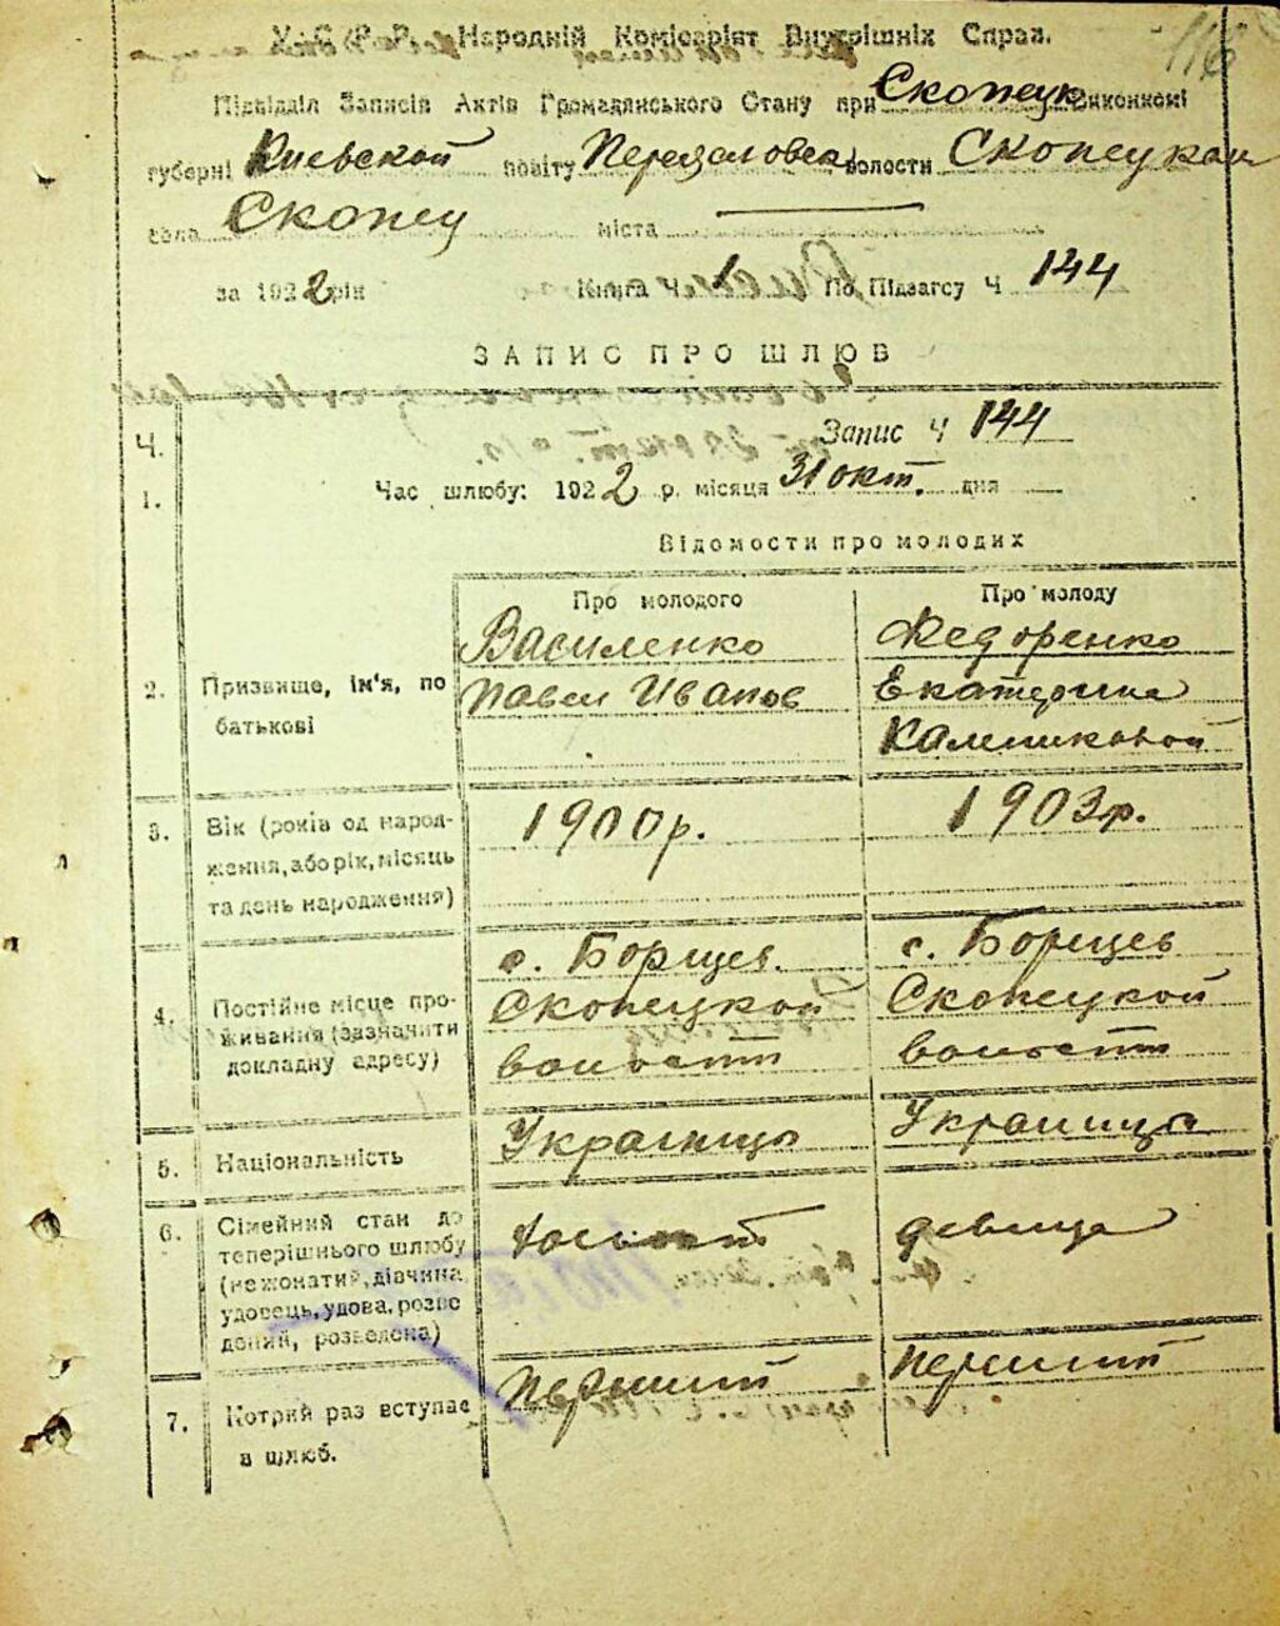 У.С.Р.Р. Народній Комісаріят Внутрішніх Справ.
116
Підвідділ Записів Актів Громадянського Стану при Скопецк Виконкомі
губерні Киевской повіту Переясловск волости Скопецкой
села Скопец міста
за 1922 рік Книга Ч. 1 По Підзагсу Ч 144
ЗАПИС ПРО ШЛЮБ
Ч. Запис Ч 144
1. Час шлюбу: 1922 р. місяця 31 окт. дня
Відомости про молодих
Про молодого Про молоду
Василенко Федоренко
2. Призвище, ім'я, по Павел Иванов Екатерина
батькові
3. Вік (років од народ- 1900р. 1903р.
ження, або рік, місяць
та день народження)
с. Борщев с. Борщев
4. Постійне місце про- Скопецкой Скопецкой
живання (зазначити волости волости
докладну адресу)
5. Національність Украинцы Украинцы
6. Сімейний стан до девица
теперішнього шлюбу
(нежонатий, дівчина,
удовець, удова, розве
дений, розведена)
7. Котрий раз вступає первый первый
в шлюб.